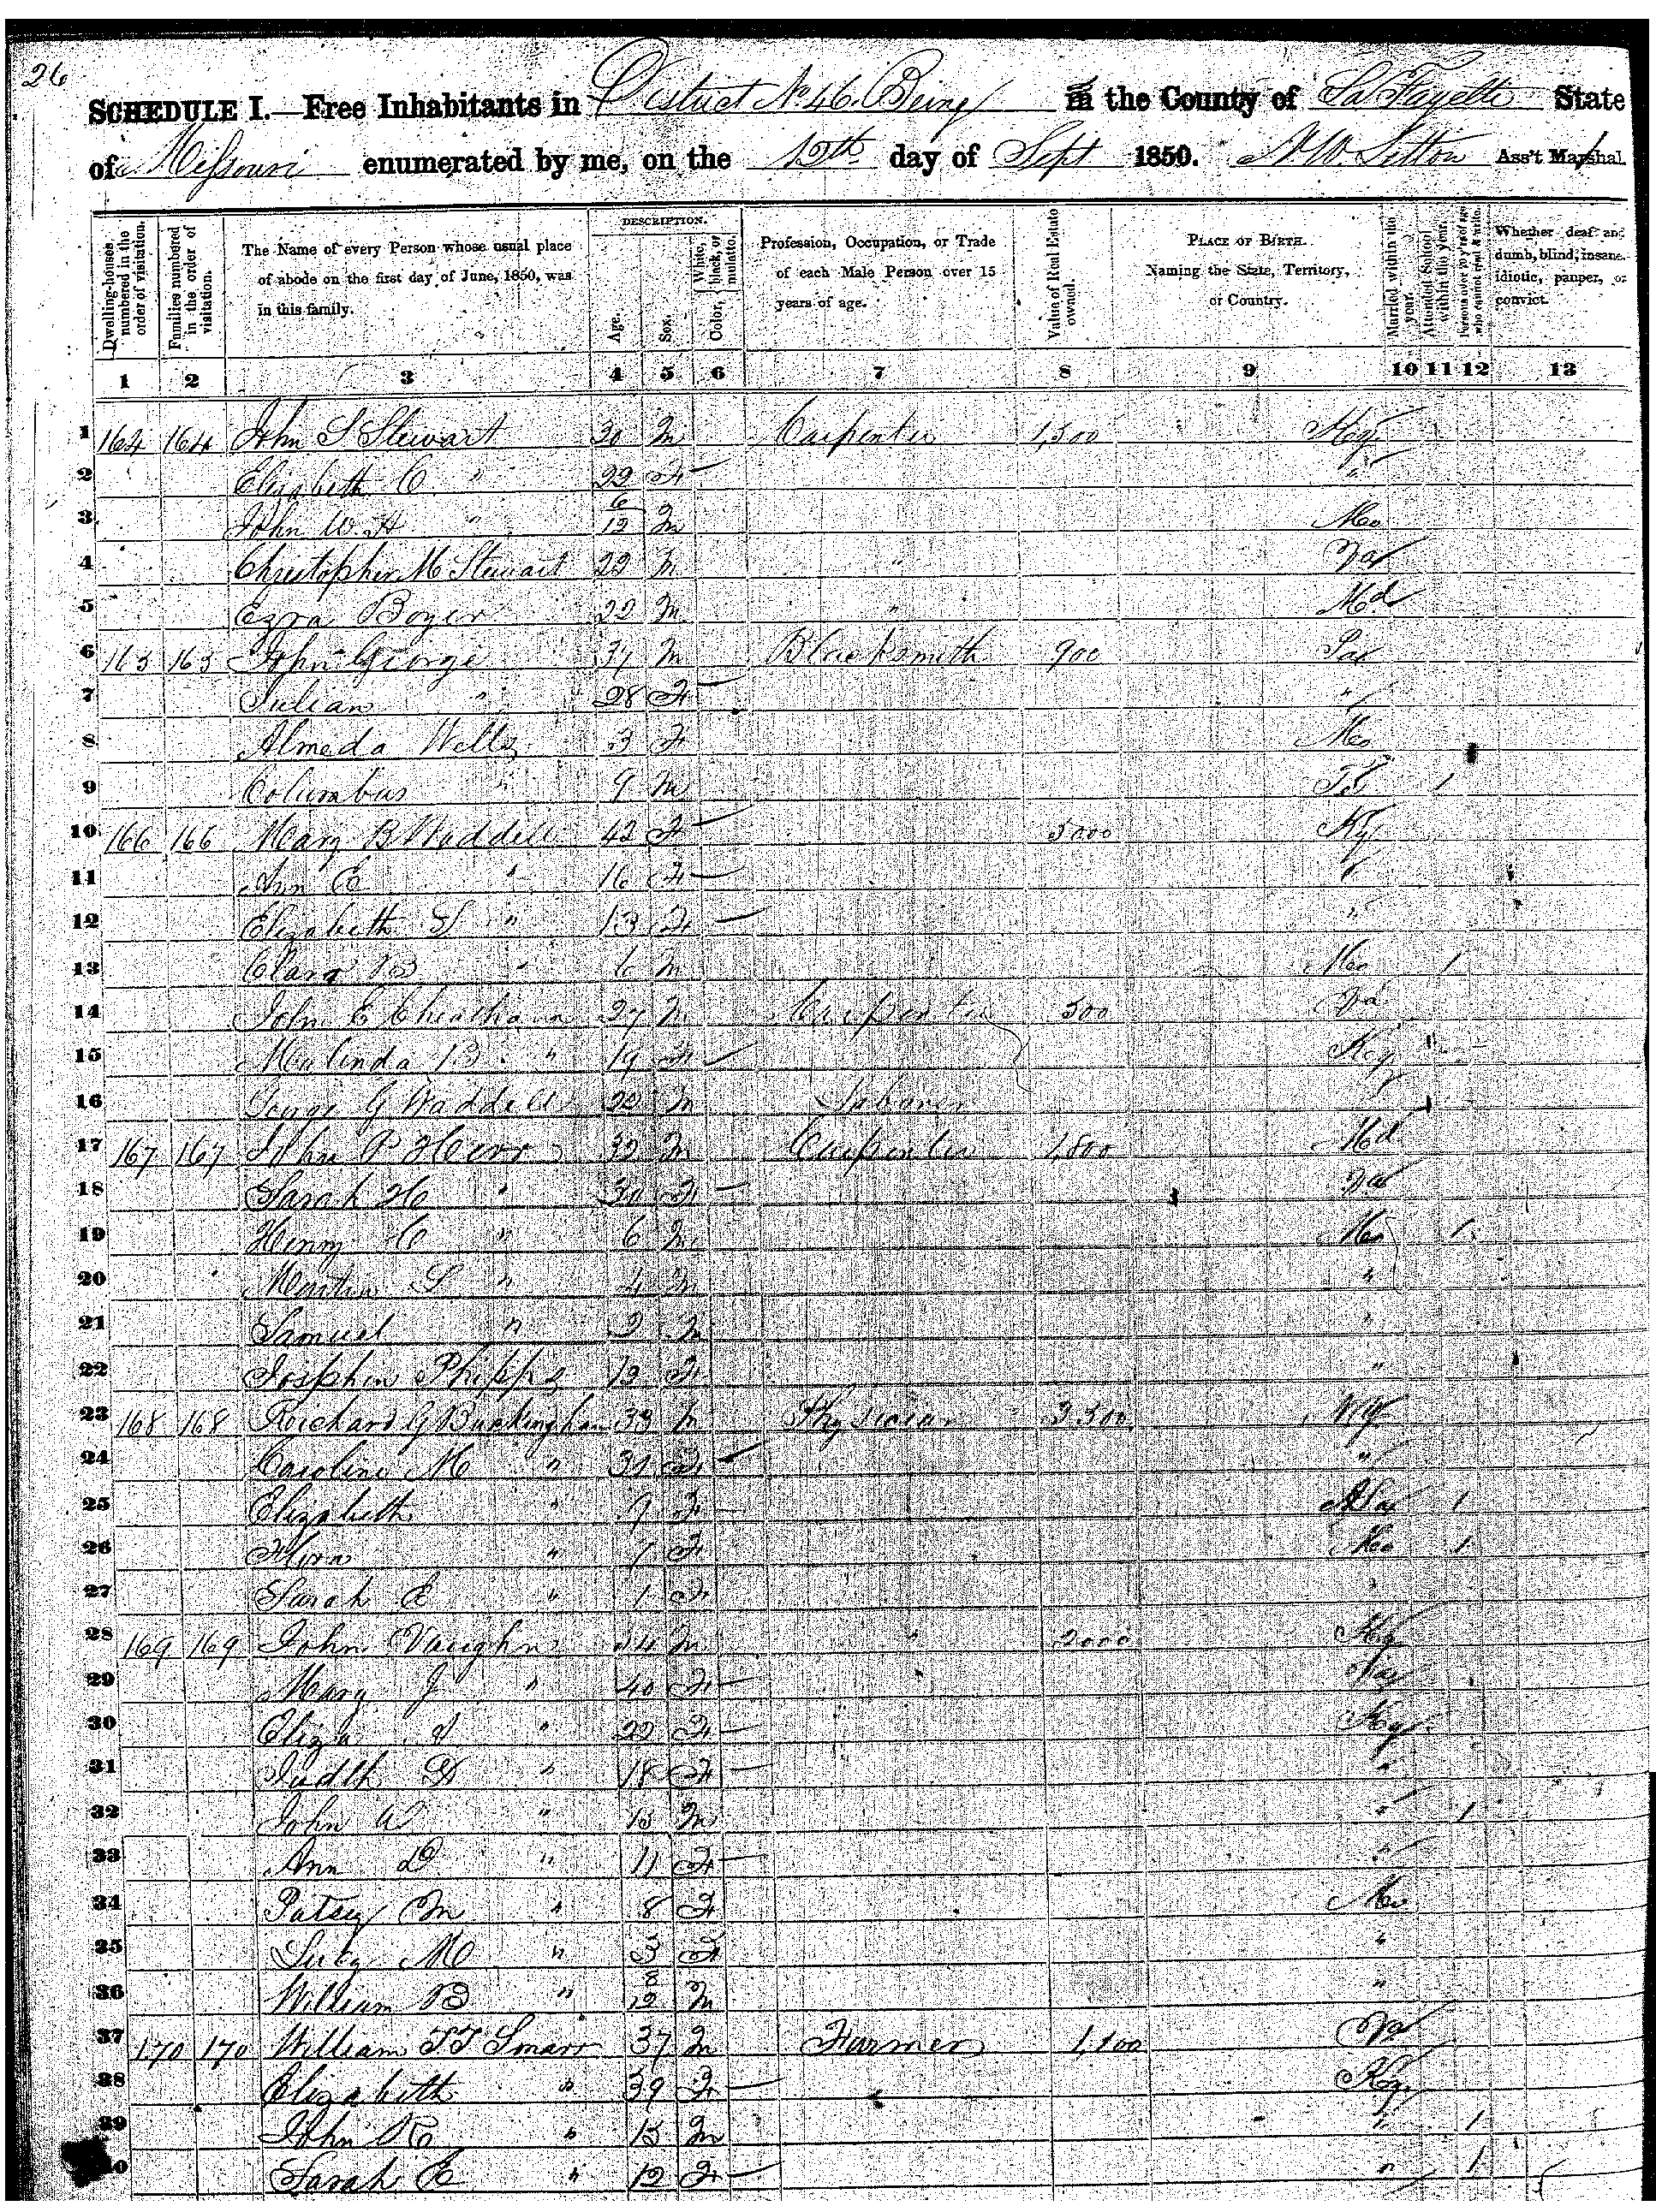 26
SCHEDULE I.—Free Inhabitants in District No 46 Being in the County of La Fayette State
of Missouri enumerated by me, on the 12th day of Sept 1850. Ass't Marshal.
Dwelling-houses numbered in the order of visitation.
Families numbered in the order of visitation.
The Name of every Person whose usual place of abode on the first day of June, 1850, was in this family.
DESCRIPTION.
Age.
Sex.
Color, White, black, or mulatto.
Profession, Occupation, or Trade of each Male Person over 15 years of age.
Value of Real Estate owned.
PLACE OF BIRTH. Naming the State, Territory, or Country.
Married within the year.
Attended School within the year.
Persons over 20 y'rs of age who cannot read & write.
Whether deaf and dumb, blind, insane, idiotic, pauper, or convict.
1 2 3 4 5 6 7 8 9 10 11 12 13
1 164 164 John S Stewart 30 M Carpenter 1,500 Ky
2 Elizabeth C " 22 F "
3 John W. H " 6/12 M Mo
4 Christopher M Stewart 22 M " Va
5 Ezra Boyer 22 M " Md
6 165 165 John George 37 M Blacksmith 900 Pa
7 Julian " 28 F "
8 Almeda Wells 3 F Mo
9 Columbus " 9 M 1
10 166 166 Mary B Waddell 42 F 5000 Ky
11 Ann E " 16 F "
12 Elizabeth " 13 F "
13 B " 6 M Mo 1
14 John E Cheatham 27 M Carpenter 500 Va
15 Malinda B " 19 F Ky
16 George G Waddell 22 M Laborer
17 167 167 John P Herr 32 M Carpenter 1,800 Md
18 Sarah H " 30 F Va
19 Henry C " 6 M Mo 1
20 Martin L " 4 M "
21 Samuel " 2 M "
22 Josphin Phipps 13 F "
23 168 168 Reichard G Buckingham 33 M Physician NY
24 Caroline M " 31 F "
25 Elizabeth " 9 F 1
26 " 7 F Mo 1
27 Sarah E " 1 F "
28 169 169 John Vaughn M " 2000 Ky
29 Mary J " 40 F
30 Eliza " 22 F Ky
31 Judth " 18 F "
32 John " 15 M " 1
33 Ann D " 11 F "
34 Patsey M " 8 F Mo
35 Lucy M " 3 F "
36 William B " 8/12 M "
37 170 170 William Smarr 37 M Farmer 1,100 Va
38 Elizabeth " 39 F Ky
39 John R " 15 M " 1
40 Sarah E " 12 F " 1